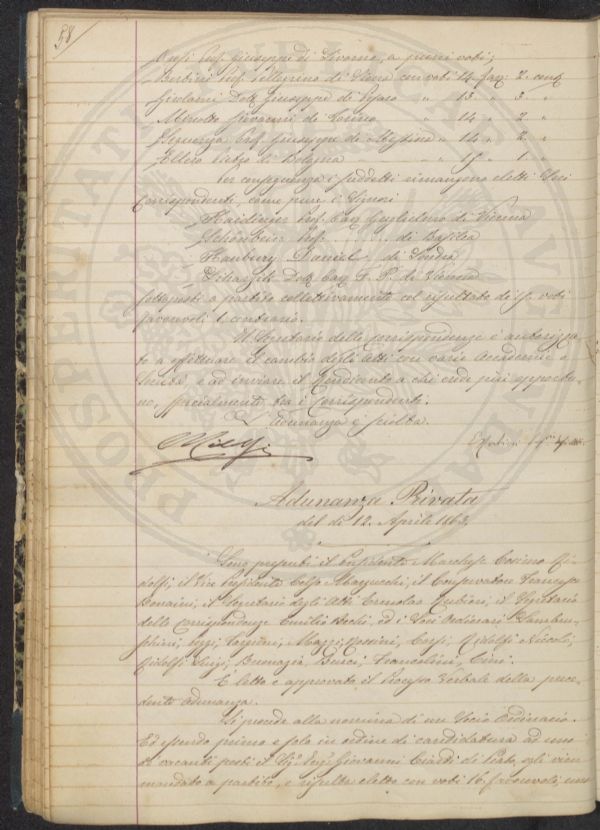 58
Orosi Prof. Giuseppe di Livorno, a pieni voti;
Bertini Prof. Pellegrino di Siena con voti 14 fav: 2. cont.
Girolami Dott. Giuseppe di " 13 " 3. "
Giovanni de Torino " 14 " 2. "
Seguenza Prof. Giuseppe di Messina " 14 " 2. "
di Bologna " 15 " 1. "
Per conseguenza i suddetti rimangono eletti Soci
Corrispondenti, come pure i Signori
Haidinger Prof. Cav. Guglielmo di Vienna
Schönbein Prof. ...... di Basilea
Hanbury Daniel di Londra
Dott. Cav. F. P. di Vienna
sottoposti a partito collettivamente col resultato di 15. voti
favorevoli 1. contrario.
Il Secretario delle corrispondenze è autorizza-
to a effettuare il cambio degli Atti con varie Accademie e
ed inviare il Rendiconto a chi creda più opportu-
no, specialmente tra i corrispondenti.
L'adunanza è sciolta.
Adunanza Privata
del dì 12. Aprile 1863.
Sono presenti il Presidente Marchese Cosimo Ri-
dolfi, il Vice Presidente Celso Marzucchi, il Conservatore Francesco
Bonaini, il Secretario degli Atti Ermolao Rubieri, il Segretario
delle corrispondenze Emilio Bechi, ed i Soci Ordinari Lambru-
schini, Targioni, Mazzi, Corsi, Ridolfi Niccolò,
Ridolfi Luigi, Burci, Franceschini, Cini.
È letto e approvato il Processo Verbale della prece-
dente adunanza.
Si procede alla nomina di un Socio Ordinario.
Ed essendo primo e solo in ordine di candidatura ad uno
dei vacanti posti il Sig. Ing. Giovanni Ciardi di Prato, egli vien
mandato a partito, e risulta eletto con voti 16. favorevoli, uno